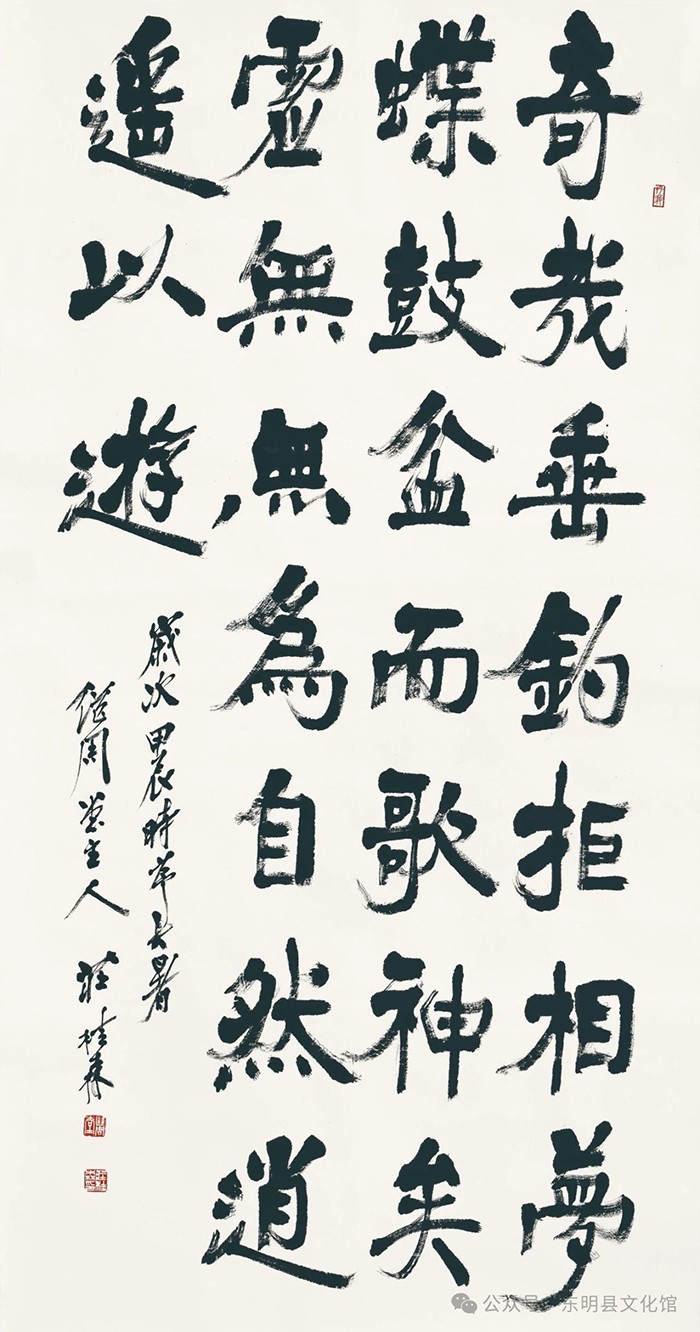 奇哉垂釣拒相夢
蝶鼓盆而歌神矣
虛無無為自然逍
遥以遊
歲次甲辰時年大暑
繼周堂主人莊桂森
公众号·东明县文化馆